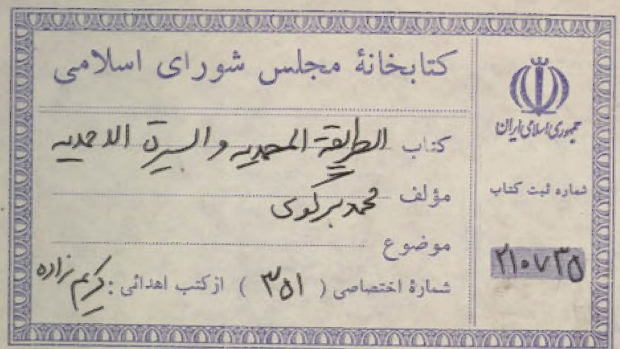 کتابخانهٔ مجلس شورای اسلامی
کتاب الطریقة المحمدیه والسیرة الاحمدیه
مؤلف محمد برگوی
موضوع
شمارهٔ اختصاصی ( ۳۵۱ ) از کتب اهدائی : کریم زاده
جمهوری اسلامی ایران
شماره ثبت کتاب
۲۱۰۷۳۵